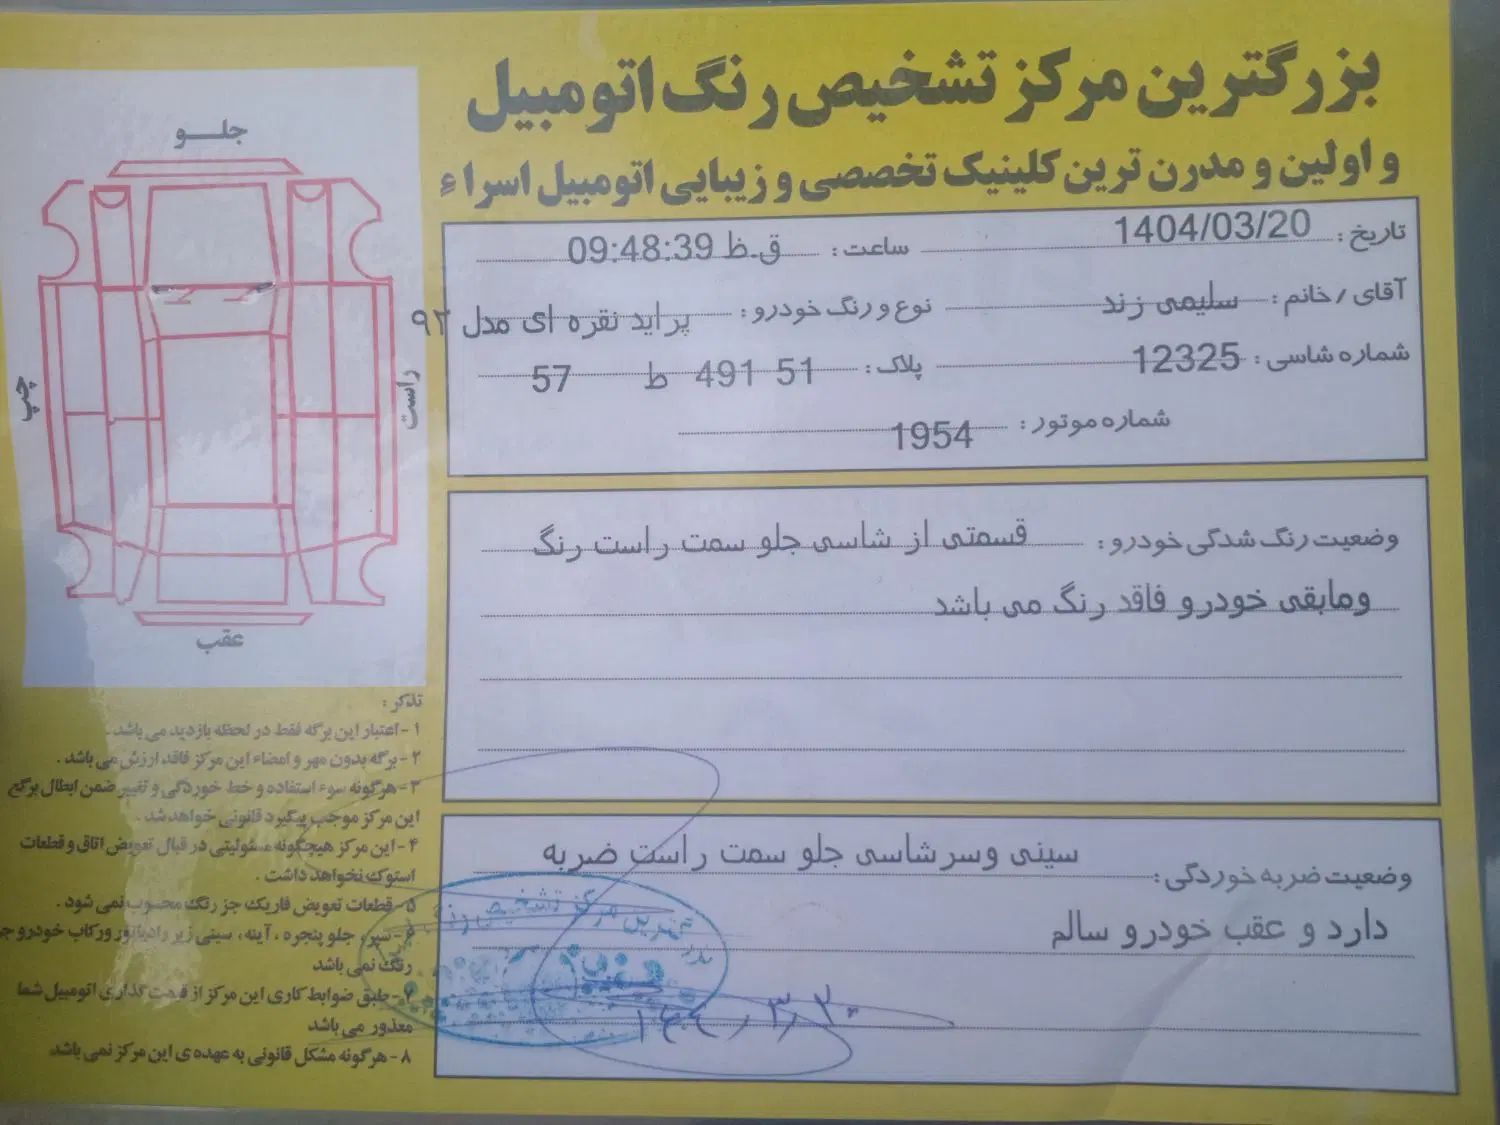 بزرگترین مرکز تشخیص رنگ اتومبیل
و اولین و مدرن ترین کلینیک تخصصی و زیبایی اتومبیل اسراء
تاریخ: 1404/03/20 ساعت: 09:48:39 ق.ظ
آقای / خانم: سلیمی زند نوع و رنگ خودرو: پراید نقره ای مدل ۹۲
شماره شاسی: 12325 پلاک: 51 491 ط 57
شماره موتور: 1954
وضعیت رنگ شدگی خودرو: قسمتی از شاسی جلو سمت راست رنگ
ومابقی خودرو فاقد رنگ می باشد
وضعیت ضربه خوردگی: سینی وسرشاسی جلو سمت راست ضربه
دارد و عقب خودرو سالم
۱۴۰۴/۳/۲۰
جلو
راست
چپ
عقب
تذکر:
۱- اعتبار این برگه فقط در لحظه بازدید می باشد.
۲- برگه بدون مهر و امضاء این مرکز فاقد ارزش می باشد.
۳- هرگونه سوء استفاده و خط خوردگی و تغییر ضمن ابطال برگع
این مرکز موجب پیگیرد قانونی خواهد شد.
۴- این مرکز هیچگونه مسئولیتی در قبال تعویض اتاق و قطعات
استوک نخواهد داشت.
۵- قطعات تعویض فاریک جز رنگ محسوب نمی شود.
۶- سپر، جلو پنجره، آینه، سینی زیر رادیاتور ورکاب خودرو جز
رنگ نمی باشد
۷- طبق ضوابط کاری این مرکز از قیمت گذاری اتومبیل شما
معذور می باشد
۸- هرگونه مشکل قانونی به عهده ی این مرکز نمی باشد